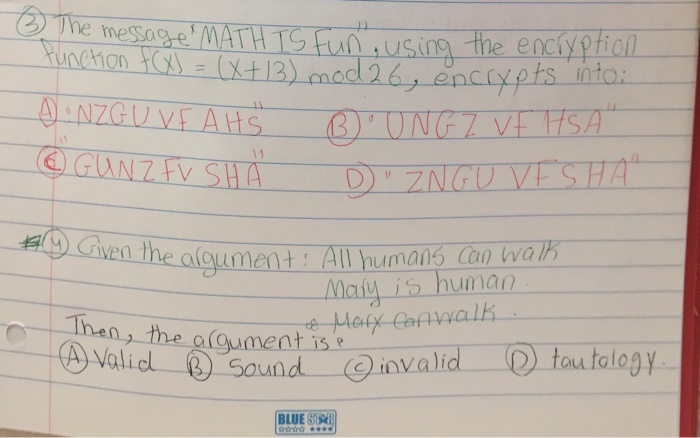 ③ The message "MATH IS Fun", using the encryption
function f(x) = (x+13) mod 26, encrypts into:
Ⓐ "NZGU VF AHS" Ⓑ "UNGZ VF HSA"
Ⓒ "GUNZ FV SHA" Ⓓ "ZNGU VF SHA"
④ Given the argument: All humans can walk
Mary is human.
Mary can walk.
Then, the argument is:
Ⓐ Valid Ⓑ Sound Ⓒ invalid Ⓓ tautology.
BLUE STAR